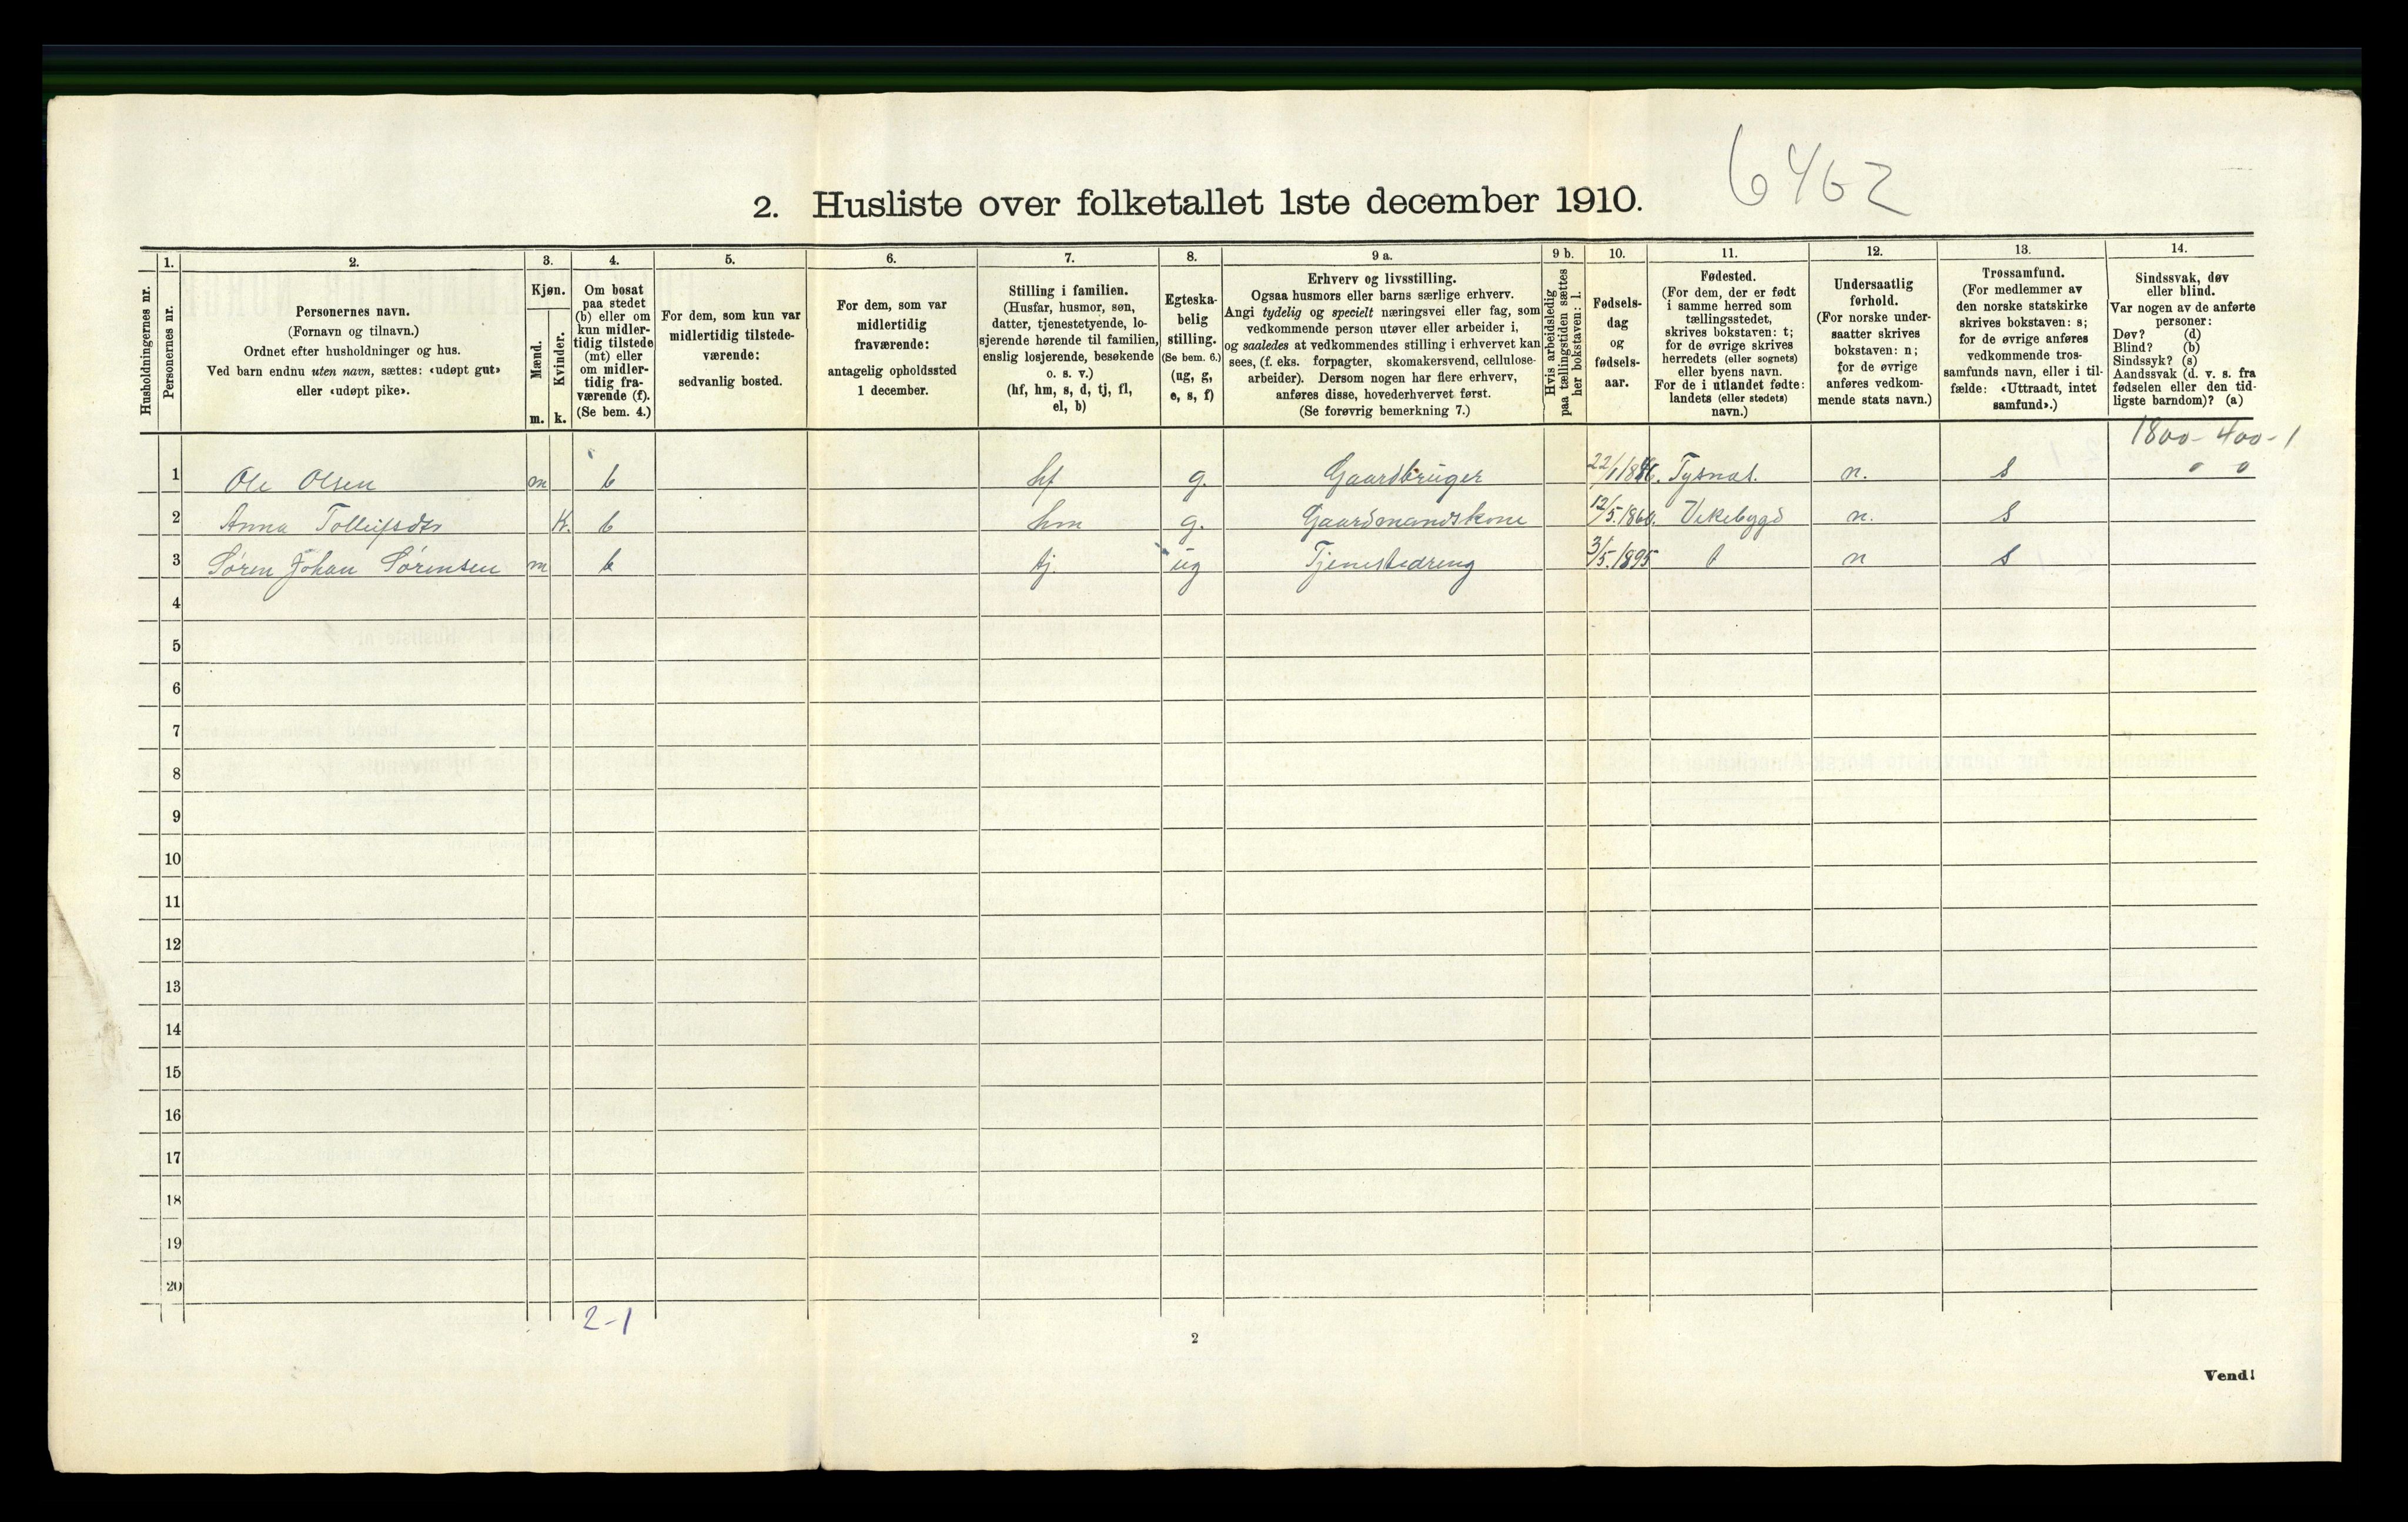 6462
2. Husliste over folketallet 1ste december 1910.
Husholdningernes nr.
1.
Personernes nr.
2.
Personernes navn.
(Fornavn og tilnavn.)
Ordnet efter husholdninger og hus.
Ved barn endnu uten navn, sættes: «udøpt gut»
eller «udøpt pike».
3.
Kjøn.
Mænd.
Kvinder.
m. k.
4.
Om bosat
paa stedet
(b) eller om
kun midler-
tidig tilstede
(mt) eller
om midler-
tidig fra-
værende (f).
(Se bem. 4.)
5.
For dem, som kun var
midlertidig tilstede-
værende:
sedvanlig bosted.
6.
For dem, som var
midlertidig
fraværende:
antagelig opholdssted
1 december.
7.
Stilling i familien.
(Husfar, husmor, søn,
datter, tjenestetyende, lo-
sjerende hørende til familien,
enslig losjerende, besøkende
o. s. v.)
(hf, hm, s, d, tj, fl,
el, b)
8.
Egteska-
belig
stilling.
(Se bem. 6.)
(ug, g,
e, s, f)
9 a.
Erhverv og livsstilling.
Ogsaa husmors eller barns særlige erhverv.
Angi tydelig og specielt næringsvei eller fag, som
vedkommende person utøver eller arbeider i,
og saaledes at vedkommendes stilling i erhvervet kan
sees, (f. eks. forpagter, skomakersvend, cellulose-
arbeider). Dersom nogen har flere erhverv,
anføres disse, hovederhvervet først.
(Se forøvrig bemerkning 7.)
9 b.
Hvis arbeidsledig
paa tællingstiden sættes
her bokstaven: l.
10.
Fødsels-
dag
og
fødsels-
aar.
11.
Fødested.
(For dem, der er født
i samme herred som
tællingsstedet,
skrives bokstaven: t;
for de øvrige skrives
herredets (eller sognets)
eller byens navn.
For de i utlandet fødte:
landets (eller stedets)
navn.)
12.
Undersaatlig
forhold.
(For norske under-
saatter skrives
bokstaven: n;
for de øvrige
anføres vedkom-
mende stats navn.)
13.
Trossamfund.
(For medlemmer av
den norske statskirke
skrives bokstaven: s;
for de øvrige anføres
vedkommende tros-
samfunds navn, eller i til-
fælde: «Uttraadt, intet
samfund».)
14.
Sindssvak, døv
eller blind.
Var nogen av de anførte
personer:
Døv? (d)
Blind? (b)
Sindssyk? (s)
Aandssvak (d. v. s. fra
fødselen eller den tid-
ligste barndom)? (a)
1800-400-1
0 0
1 Ole Olsen m b hf g. Gaardbruger 22/1 1846. Tysnes. n. s
2 Anna Tollefsdtr K. b hm g. Gaardmandskone 12/5.1860. Vikebygd n. s
3 Søren Johan Sørensen m b tj. ug Tjenestedreng 3/5.1895 t n s
4
5
6
7
8
9
10
11
12
13
14
15
16
17
18
19
20
2-1
2
Vend!